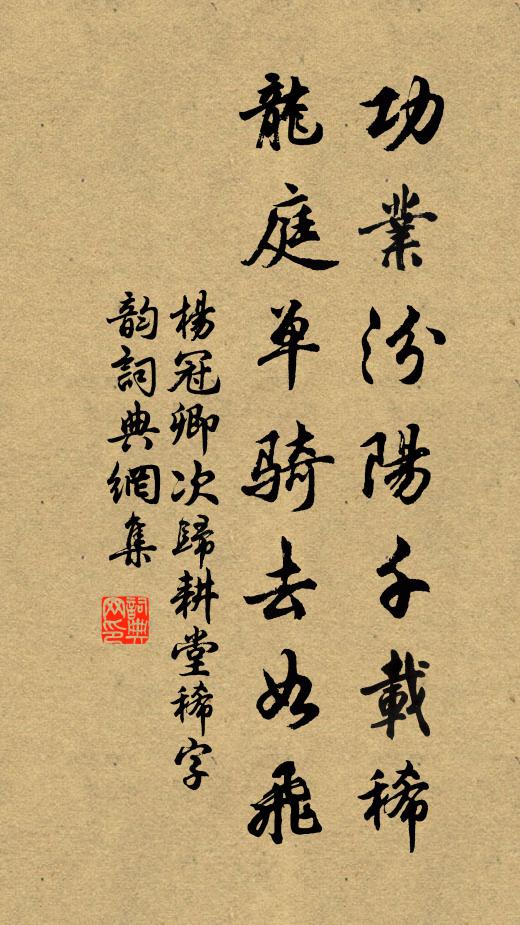 功業汾陽千載稀
龍庭单骑去如飛
楊冠卿次歸耕堂稀字
韵詞典網集
詞典
网印